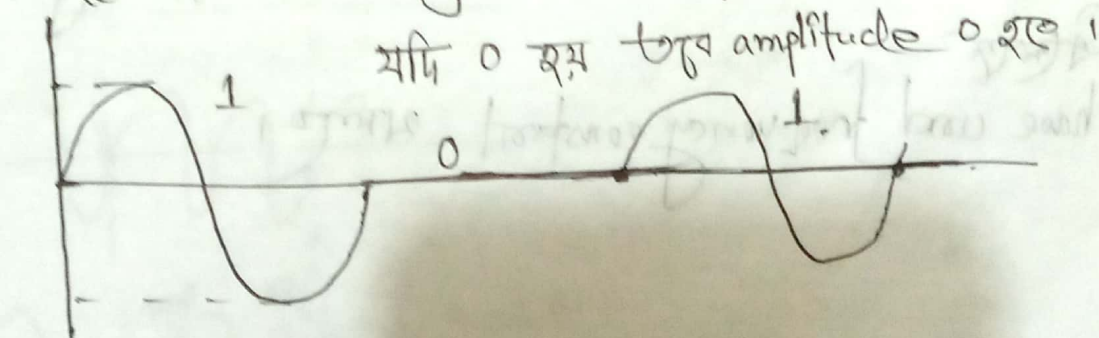 যদি 0 হয় তবে amplitude 0 হবে।
1
0
1.